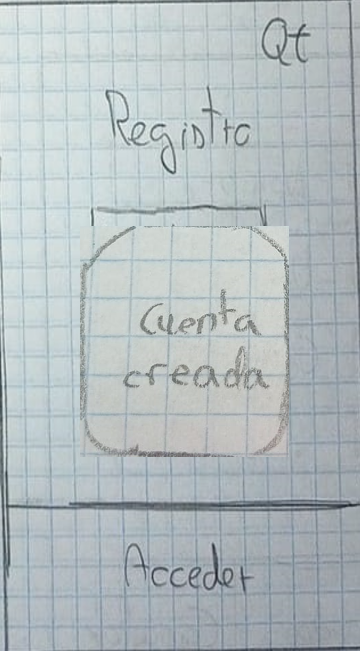 Qt
Registro
Cuenta
creada
Acceder